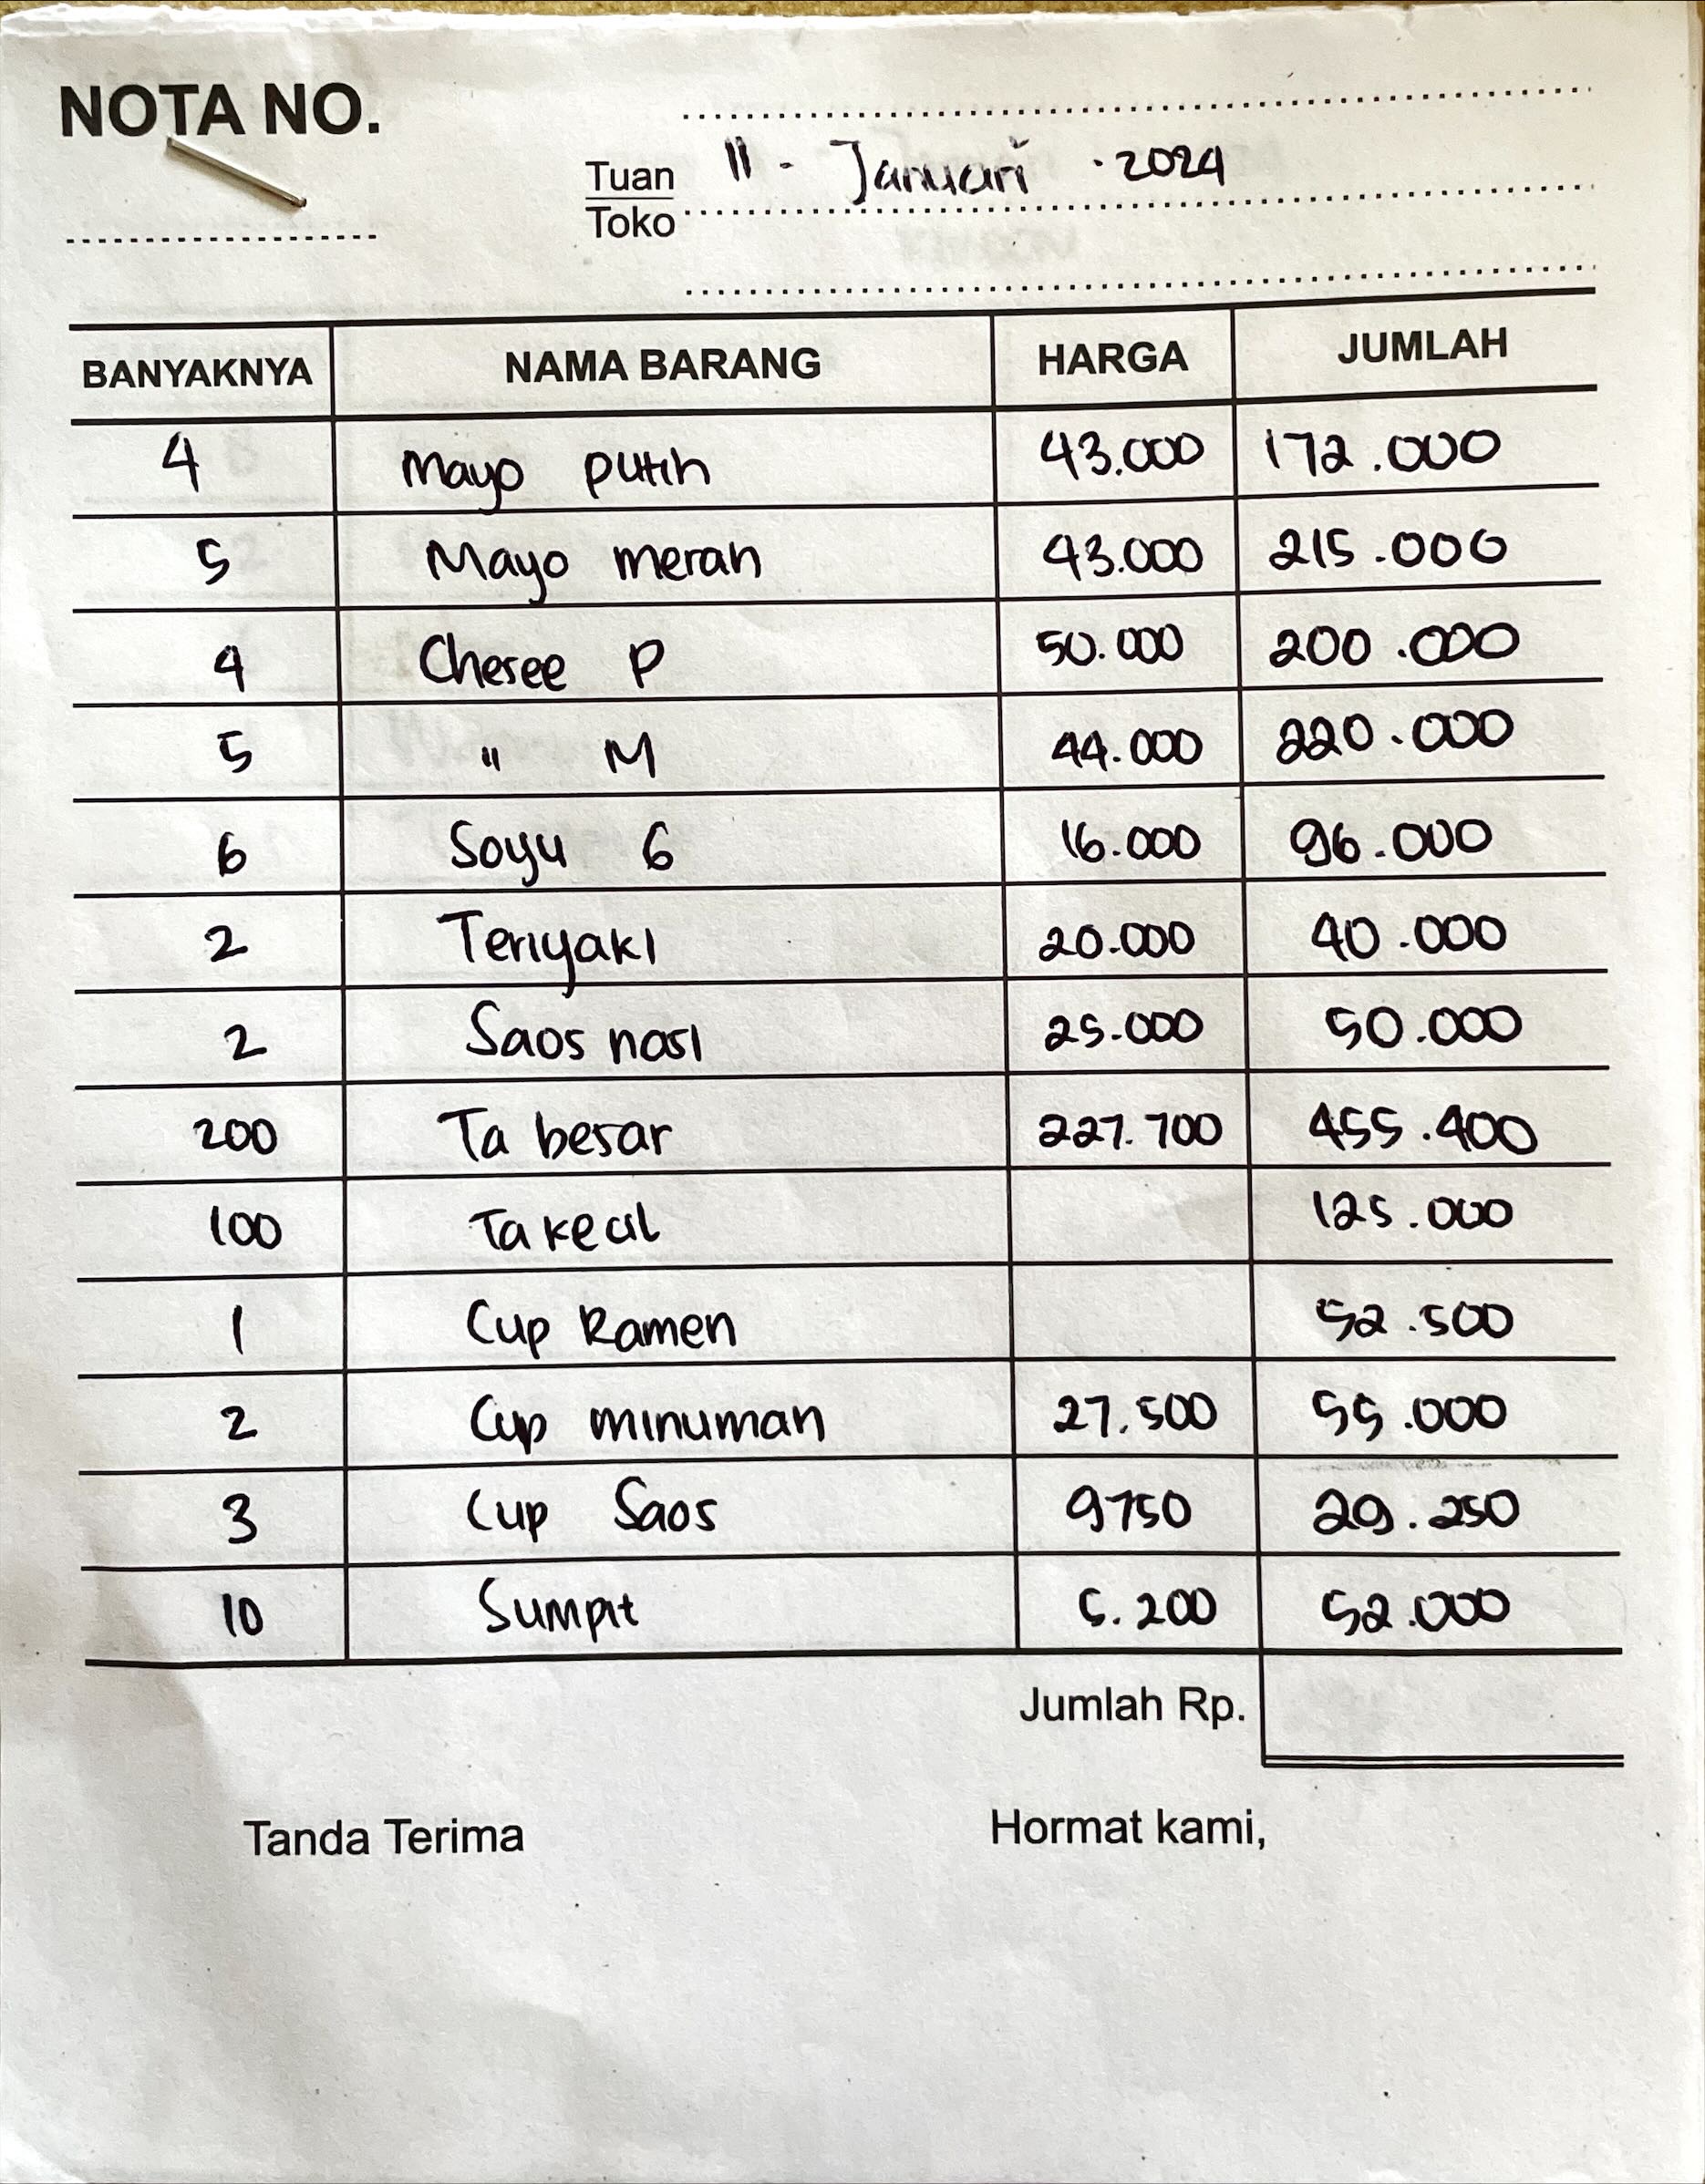 NOTA NO.
Tuan 11 - Januari . 2024
Toko
BANYAKNYA NAMA BARANG HARGA JUMLAH
4 Mayo putih 43.000 172.000
5 Mayo merah 43.000 215.000
4 Chesee P 50.000 200.000
5 " M 44.000 220.000
6 Soyu 6 16.000 96.000
2 Teriyaki 20.000 40.000
2 Saos nasi 25.000 50.000
200 Ta besar 227.700 455.400
100 Ta kecil 125.000
1 Cup Ramen 52.500
2 Cup minuman 27.500 55.000
3 Cup Saos 9750 29.250
10 Sumpit 5.200 52.000
Jumlah Rp.
Tanda Terima Hormat kami,